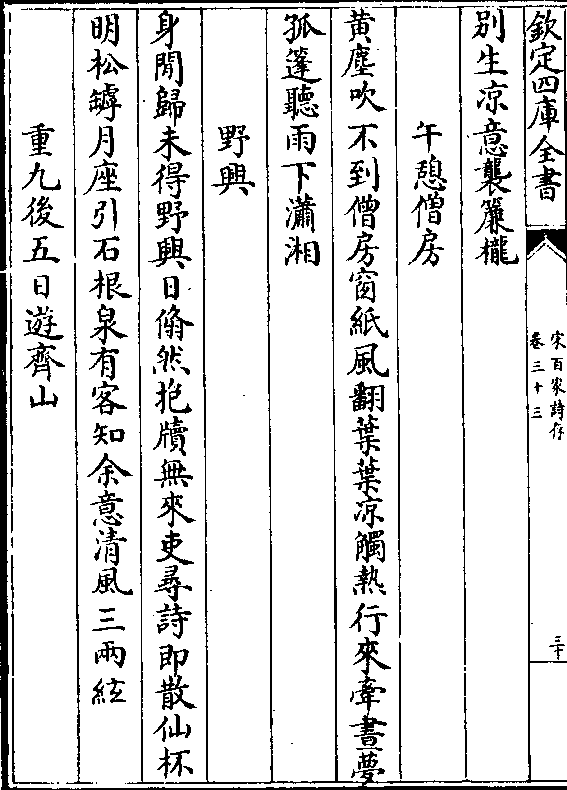 欽定四庫全書
宋百家詩存
卷三十三
三十
別生凉意襲簾櫳
午憩僧房
黄塵吹不到僧房窗紙風翻葉葉凉觸熱行來牽晝夢
孤篷聽雨下瀟湘
野興
身閒歸未得野興日翛然抱牘無來吏尋詩即散仙杯
明松罅月座引石根泉有客知余意清風三兩絃
重九後五日遊齊山